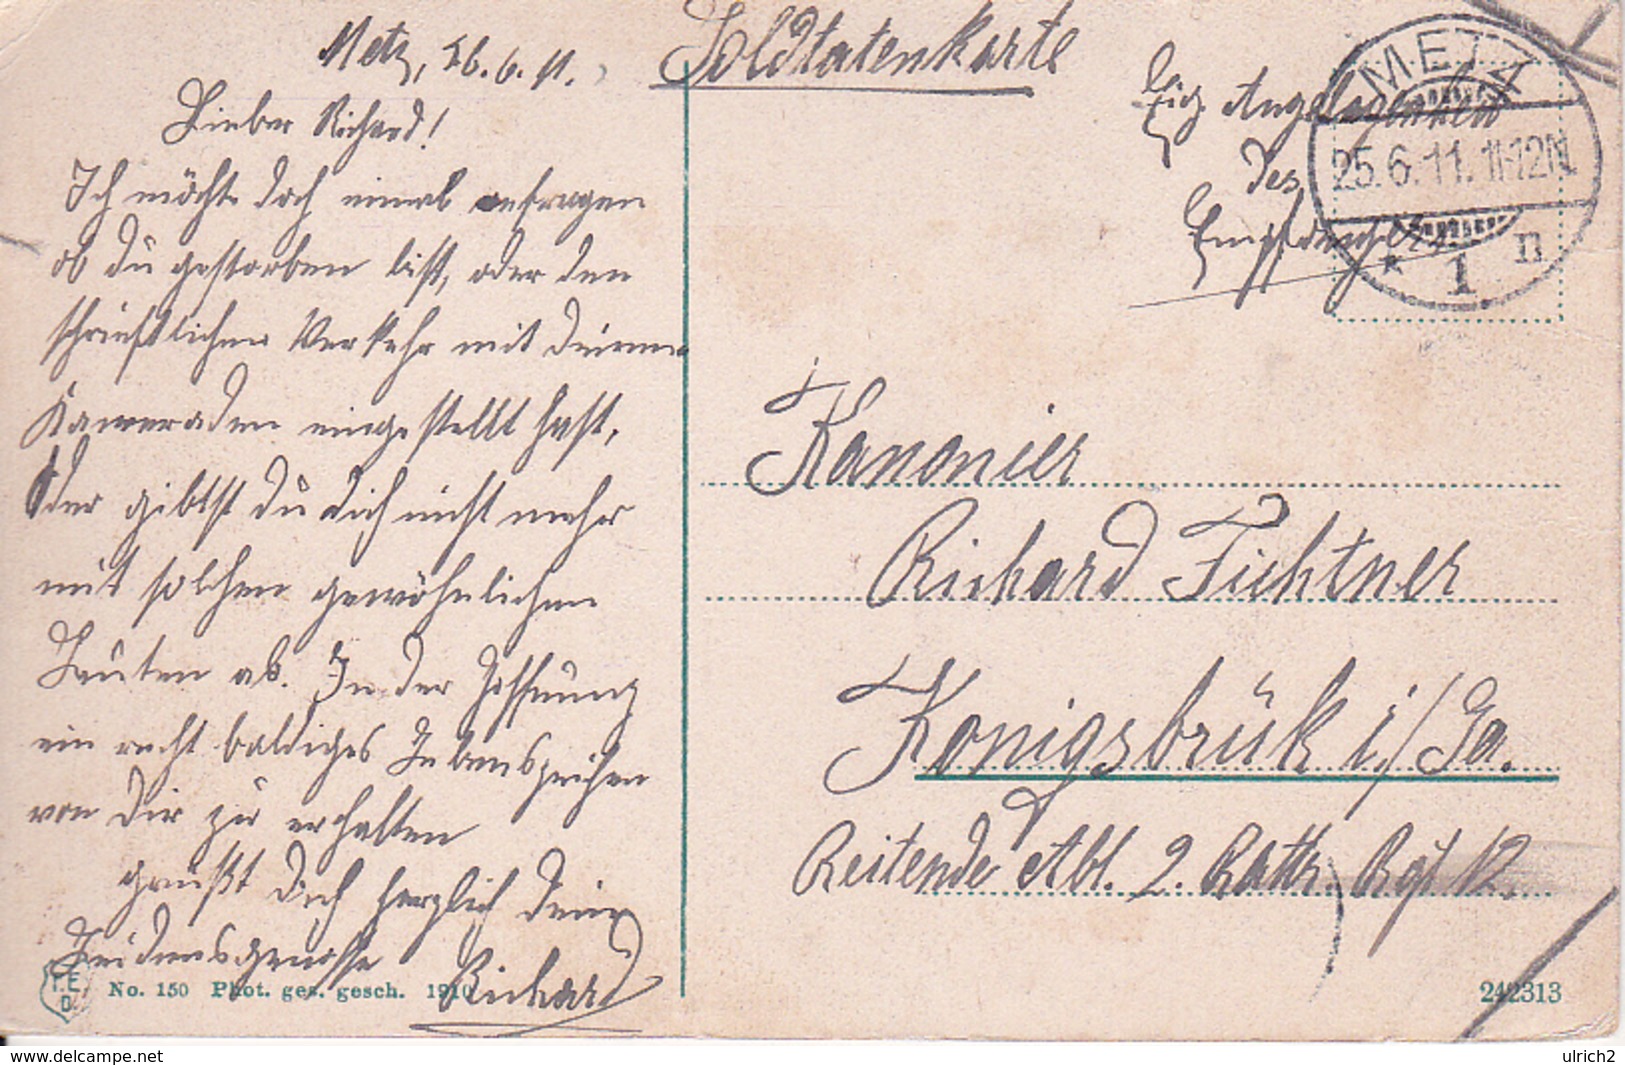 Metz, 26.6.11.
Lieber Richard!
Ich möchte doch einmal anfragen
ob du gestorben bist, oder den
schriftlichen Verkehr mit deinen
Kameraden eingestellt hast,
Oder gibst du dich nicht mehr
mit solchen gewöhnlichen
Leuten ab. In der Hoffnung
ein recht baldiges Lebenszeichen
von Dir zu erhalten
grüßt Dich herzlich Dein
Leidensgenosse
Richard
T.E.
D.
No. 150 Phot. ges. gesch. 1910
Soldtatenkarte
Eig Angelegenheit
des
Empfängers
METZ
25.6.11. 11-12N
* 1 n
Kanonier
Richard Fichtner
Königsbrük i/Sa.
Reitende Abt. 2. Battr. Rgt 12.
242313
delcampe.net
ulrich2